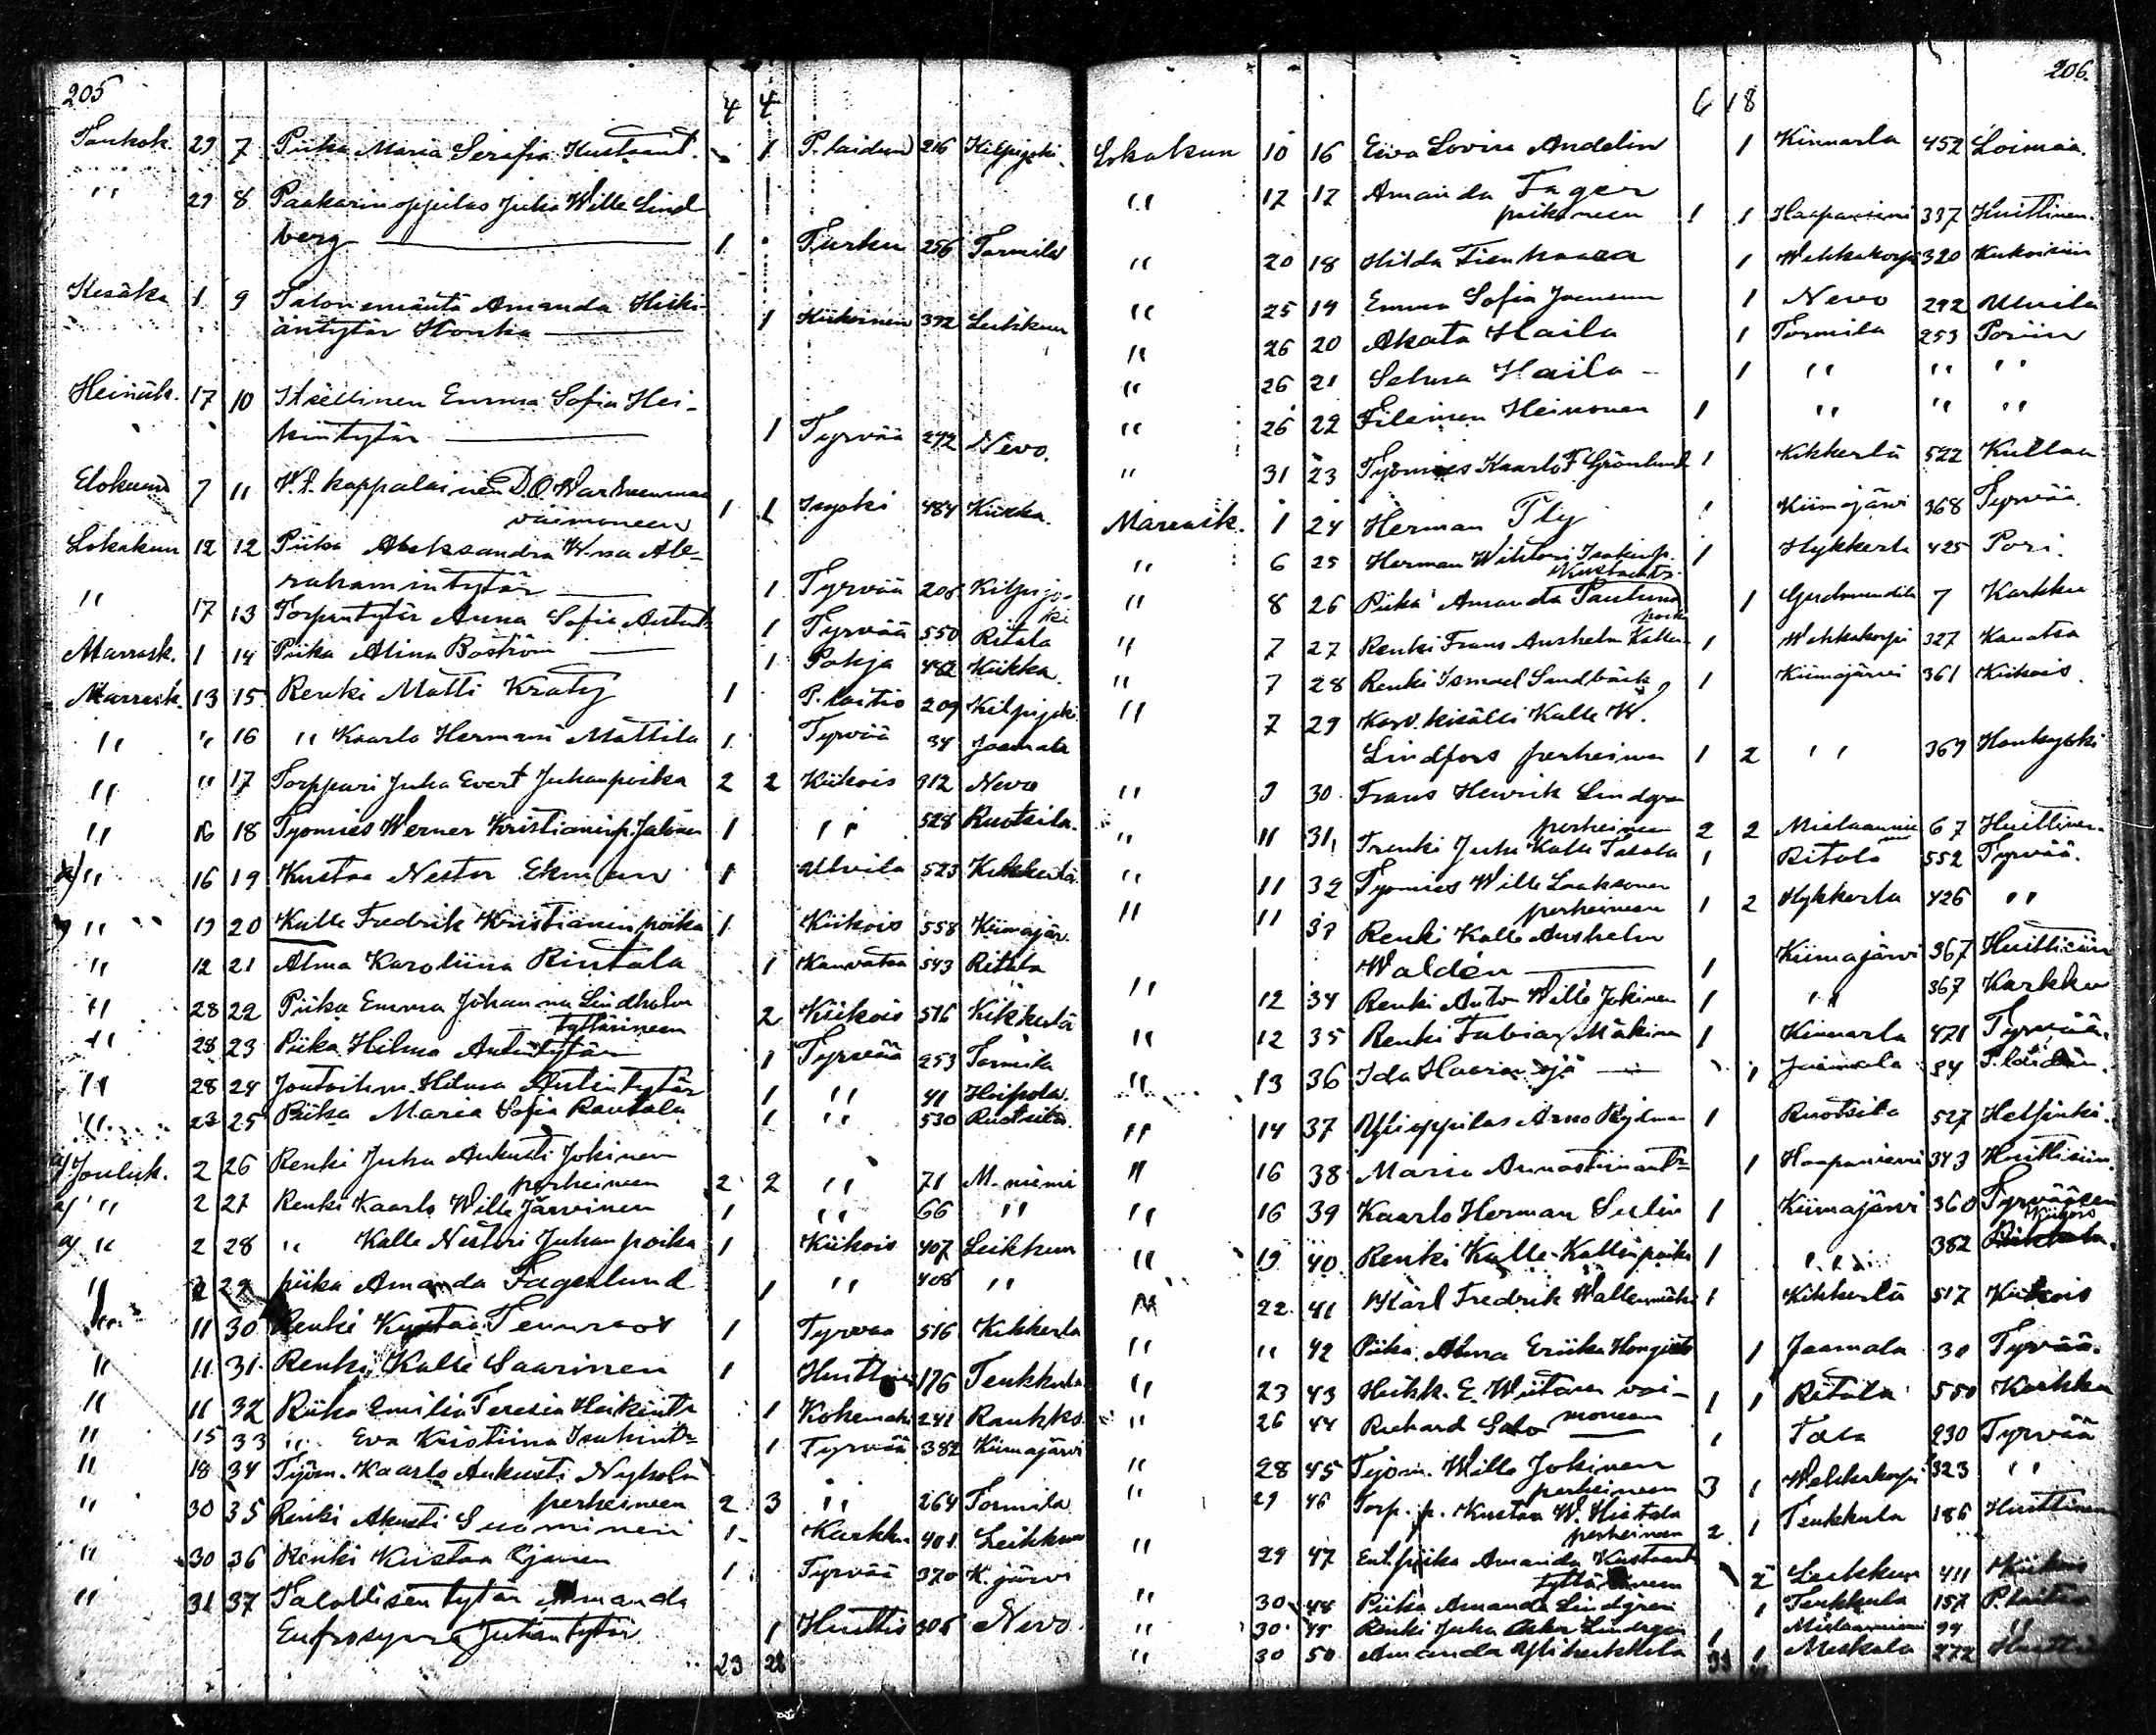 205
4 4
Toukok. 29 7 Piika Maria Serafia Kustaant. 1 P. laidun 216 Kilpijoki
" 29 8 Paakarinoppilas Juha Wille Lind
berg 1 Turku 256 Tormila
Kesäku 1 9 Talonemäntä Amanda Heiki-
äntytär Honka 1 Kiikoinen 392 Leikkuu
Heinäk. 17 10 Itsellinen Emma Sofia Hei-
kintytär 1 Tyrvää 292 Nevo.
Elokuun 7 11 V.t. kappalainen D.O.
vaimoneen 1 1 484 Kiikka.
Lokakuu 12 12 Piika Aleksandra Ab-
rahamintytär 1 Tyrvää 206 Kilpijo-
ki
" 17 13 Torpantytär Anna Sofia 1 Tyrvää 550 Ritala
Marrask. 1 14 Piika Alina Boström 1 Pohja 482 Kiikka
Marrask. 13 15 Renki Matti Kraty 1 P. laitio 209 Kilpijoki
" " 16 " Kaarlo Hermani Mattila 1 Tyrvää 34 Jaamala
" " 17 Torppari Juha Evert Juhanpoika 2 2 Kiikois 312 Nevo
" 16 18 Työmies Werner Kristianinp. Jalonen 1 " 528 Ruotsila.
" 16 19 Kustaa Nestor Ekman 1 Ulvila 523 Kikkerlä
" 19 20 Kalle Fredrik Kristianinpoika 1 Kiikois 558 Kiimajär.
" 12 21 Alma Karoliina Rintala 1 Kauvatsa 543 Ritala
" 28 22 Piika Emma Johanna Lindholm
tyttärineen 2 Kiikois 516 Kikkerlä
" 28 23 Piika Hilma Antintytär 1 Tyrvää 253 Tormila
" 28 24 Hilma Antintytär 1 " 41 Heipola
" 23 25 Piika Maria Sofia Rautala 1 " 530 Ruotsila.
Jouluk. 2 26 Renki Juha Aukusti Jokinen
perheineen 2 2 " 71 M. niemi
" 2 27 Renki Kaarlo Wille Järvinen 1 " 66 "
" 2 28 " Kalle Nestori Juhanpoika 1 Kiikois 407 Leikkuu
" 2 29 piika Amanda Fagerlund 1 " 408 "
" 11 30 Renki Kustaa 1 Tyrvää 516 Kikkerlä
" 11 31 Renki Kalle Saarinen 1 176 Teukkula
" 11 32 Piika Emilia Teresia Heikintr 1 241 Raukko
" 15 33 " Eva Kristiina 1 Tyrvää 382 Kiimajärvi
" 18 34 Työm. Kaarlo Aukusti Nyholm
perheineen 2 3 " 264 Tormila
" 30 35 Renki Akusti Suominen 1 Karkku 401 Leikkuu
" 30 36 Renki Kustaa Ojanen 1 Tyrvää 370 K. järvi
" 31 37 Talollisentytär Amanda
Eufrosyna Juhantytär 1 Huittis 306 Nevo
23 28
206
6 18
Lokakuun 10 16 Eeva Lovisa Andelin 1 Kinnarla 452 Loimaa.
" 17 17 Amanda Fager
poikaneen 1 1 Haapaniemi 337 Huittinen.
" 20 18 Hilda Tienhaara 1 Wehkakorpi 320
" 25 19 Emma Sofia 1 Nevo 292 Ulvila
" 26 20 Akata Haila 1 Tormila 253 Poriin
" 26 21 Selma Haila 1 " " "
" 26 22 Fileimon Heinonen 1 " " "
" 31 23 Työmies Kaarlo F Grönlund 1 Kikkerlä 522 Kullaa
Marrask. 1 24 Herman Pty 1 Kiimajärvi 368 Tyrvää.
" 6 25 Herman Wihtori Isakinp. 1 Hykkerlä 425 Pori.
" 8 26 Piika Amanda 1 7 Karkku
" 7 27 Renki Frans Anshelm 1 Wehkakorpi 327 Kauvatsa
" 7 28 Renki Ismael Sundbäck 1 Kiimajärvi 361 Kiikois
" 7 29 Karv. kisälli Kalle W.
Lindfors perheineen 1 2 " 369 Honkajoki
" 9 30 Frans Henrik Lindgren
perheineen 2 2 67 Huittinen
" 11 31 Renki Juho Kalle 1 Ritala 552 Tyrvää.
" 11 32 Työmies Wille Laaksonen
perheineen 1 2 Hykkerlä 426 "
" 11 33 Renki Kalle Anshelm
Waldén 1 Kiimajärvi 367 Huittisiin
" 12 34 Renki Anto Wille Jokinen 1 " 367 Karkku
" 12 35 Renki Fabian Mäkinen 1 Kinnarla 471 Tyrvää.
" 13 36 Ida Haaranoja 1 Jaamala 34 P. laidun.
" 14 37 Ylioppilas Arno 1 Ruotsila 527 Helsinki.
" 16 38 Maria 1 Haapaniemi 343 Huittisiin.
" 16 39 Kaarlo Herman Sulin 1 Kiimajärvi 360 Tyrvääsen
" 19 40 Renki Kalle Kallenpoika 1 " 382 Kiikois
" 22 41 Karl Fredrik Wallenmäki 1 Kikkerlä 517 Kiikois
" " 42 Piika Alma Eriika 1 Jaamala 30 Tyrvää.
" 23 43 E. Wiitanen vai-
moneen 1 1 Ritala 550 Karkku
" 26 44 Richard Salo 1 230 Tyrvää
" 28 45 Työm. Wille Jokinen
perheineen 3 1 Wehkakorpi 323 "
" 29 46 Torp. p. Kustaa W. Hietala
perheineen 2 1 Teukkula 186 Huittinen
" 29 47 Ent. piika Amanda
2 Leikkuu 411 Kiikois
" 30 48 Piika Amanda Lindgren 1 Teukkula 157 P. laitio
" 30 49 Renki Juha Oskar Lindgren 1 99 "
" 30 50 Amanda 1 Meskala 272